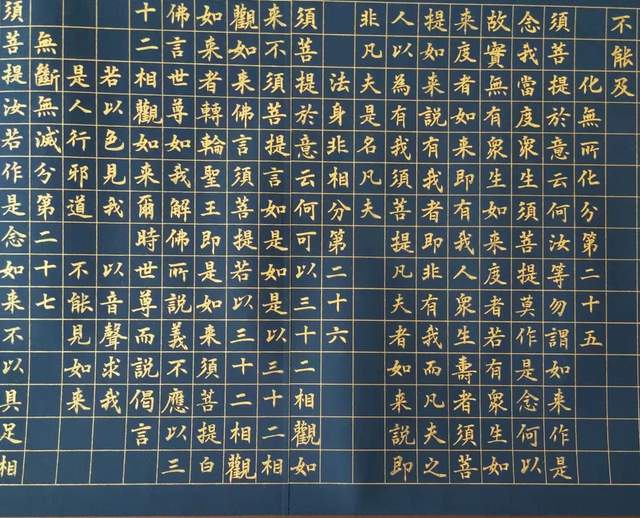 不能及
化無所化分第二十五
須菩提於意云何汝等勿謂如來作是
念我當度衆生須菩提莫作是念何以
故實無有衆生如來度者若有衆生如
來度者如來即有我人衆生壽者須菩
提如來說有我者即非有我而凡夫之
人以為有我須菩提凡夫者如來說即
非凡夫是名凡夫
法身非相分第二十六
須菩提於意云何可以三十二相觀如
來不須菩提言如是如是以三十二相
觀如來佛言須菩提若以三十二相觀
如來者轉輪聖王即是如來須菩提白
佛言世尊如我解佛所說義不應以三
十二相觀如來爾時世尊而說偈言
若以色見我 以音聲求我
是人行邪道 不能見如來
無斷無滅分第二十七
須菩提汝若作是念如來不以具足相